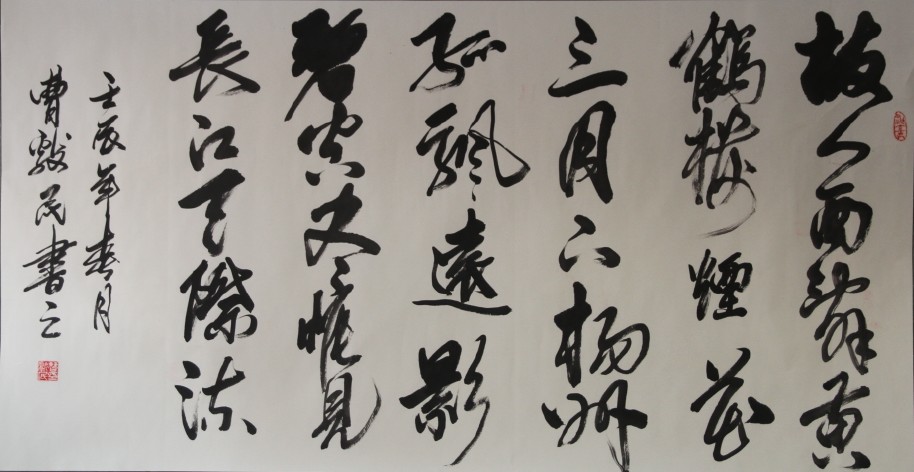 故人西辭黄
鶴樓煙花
三月下楊州
孤颿遠影
碧空尽惟見
長江天際流
壬辰年春月
曹民書之